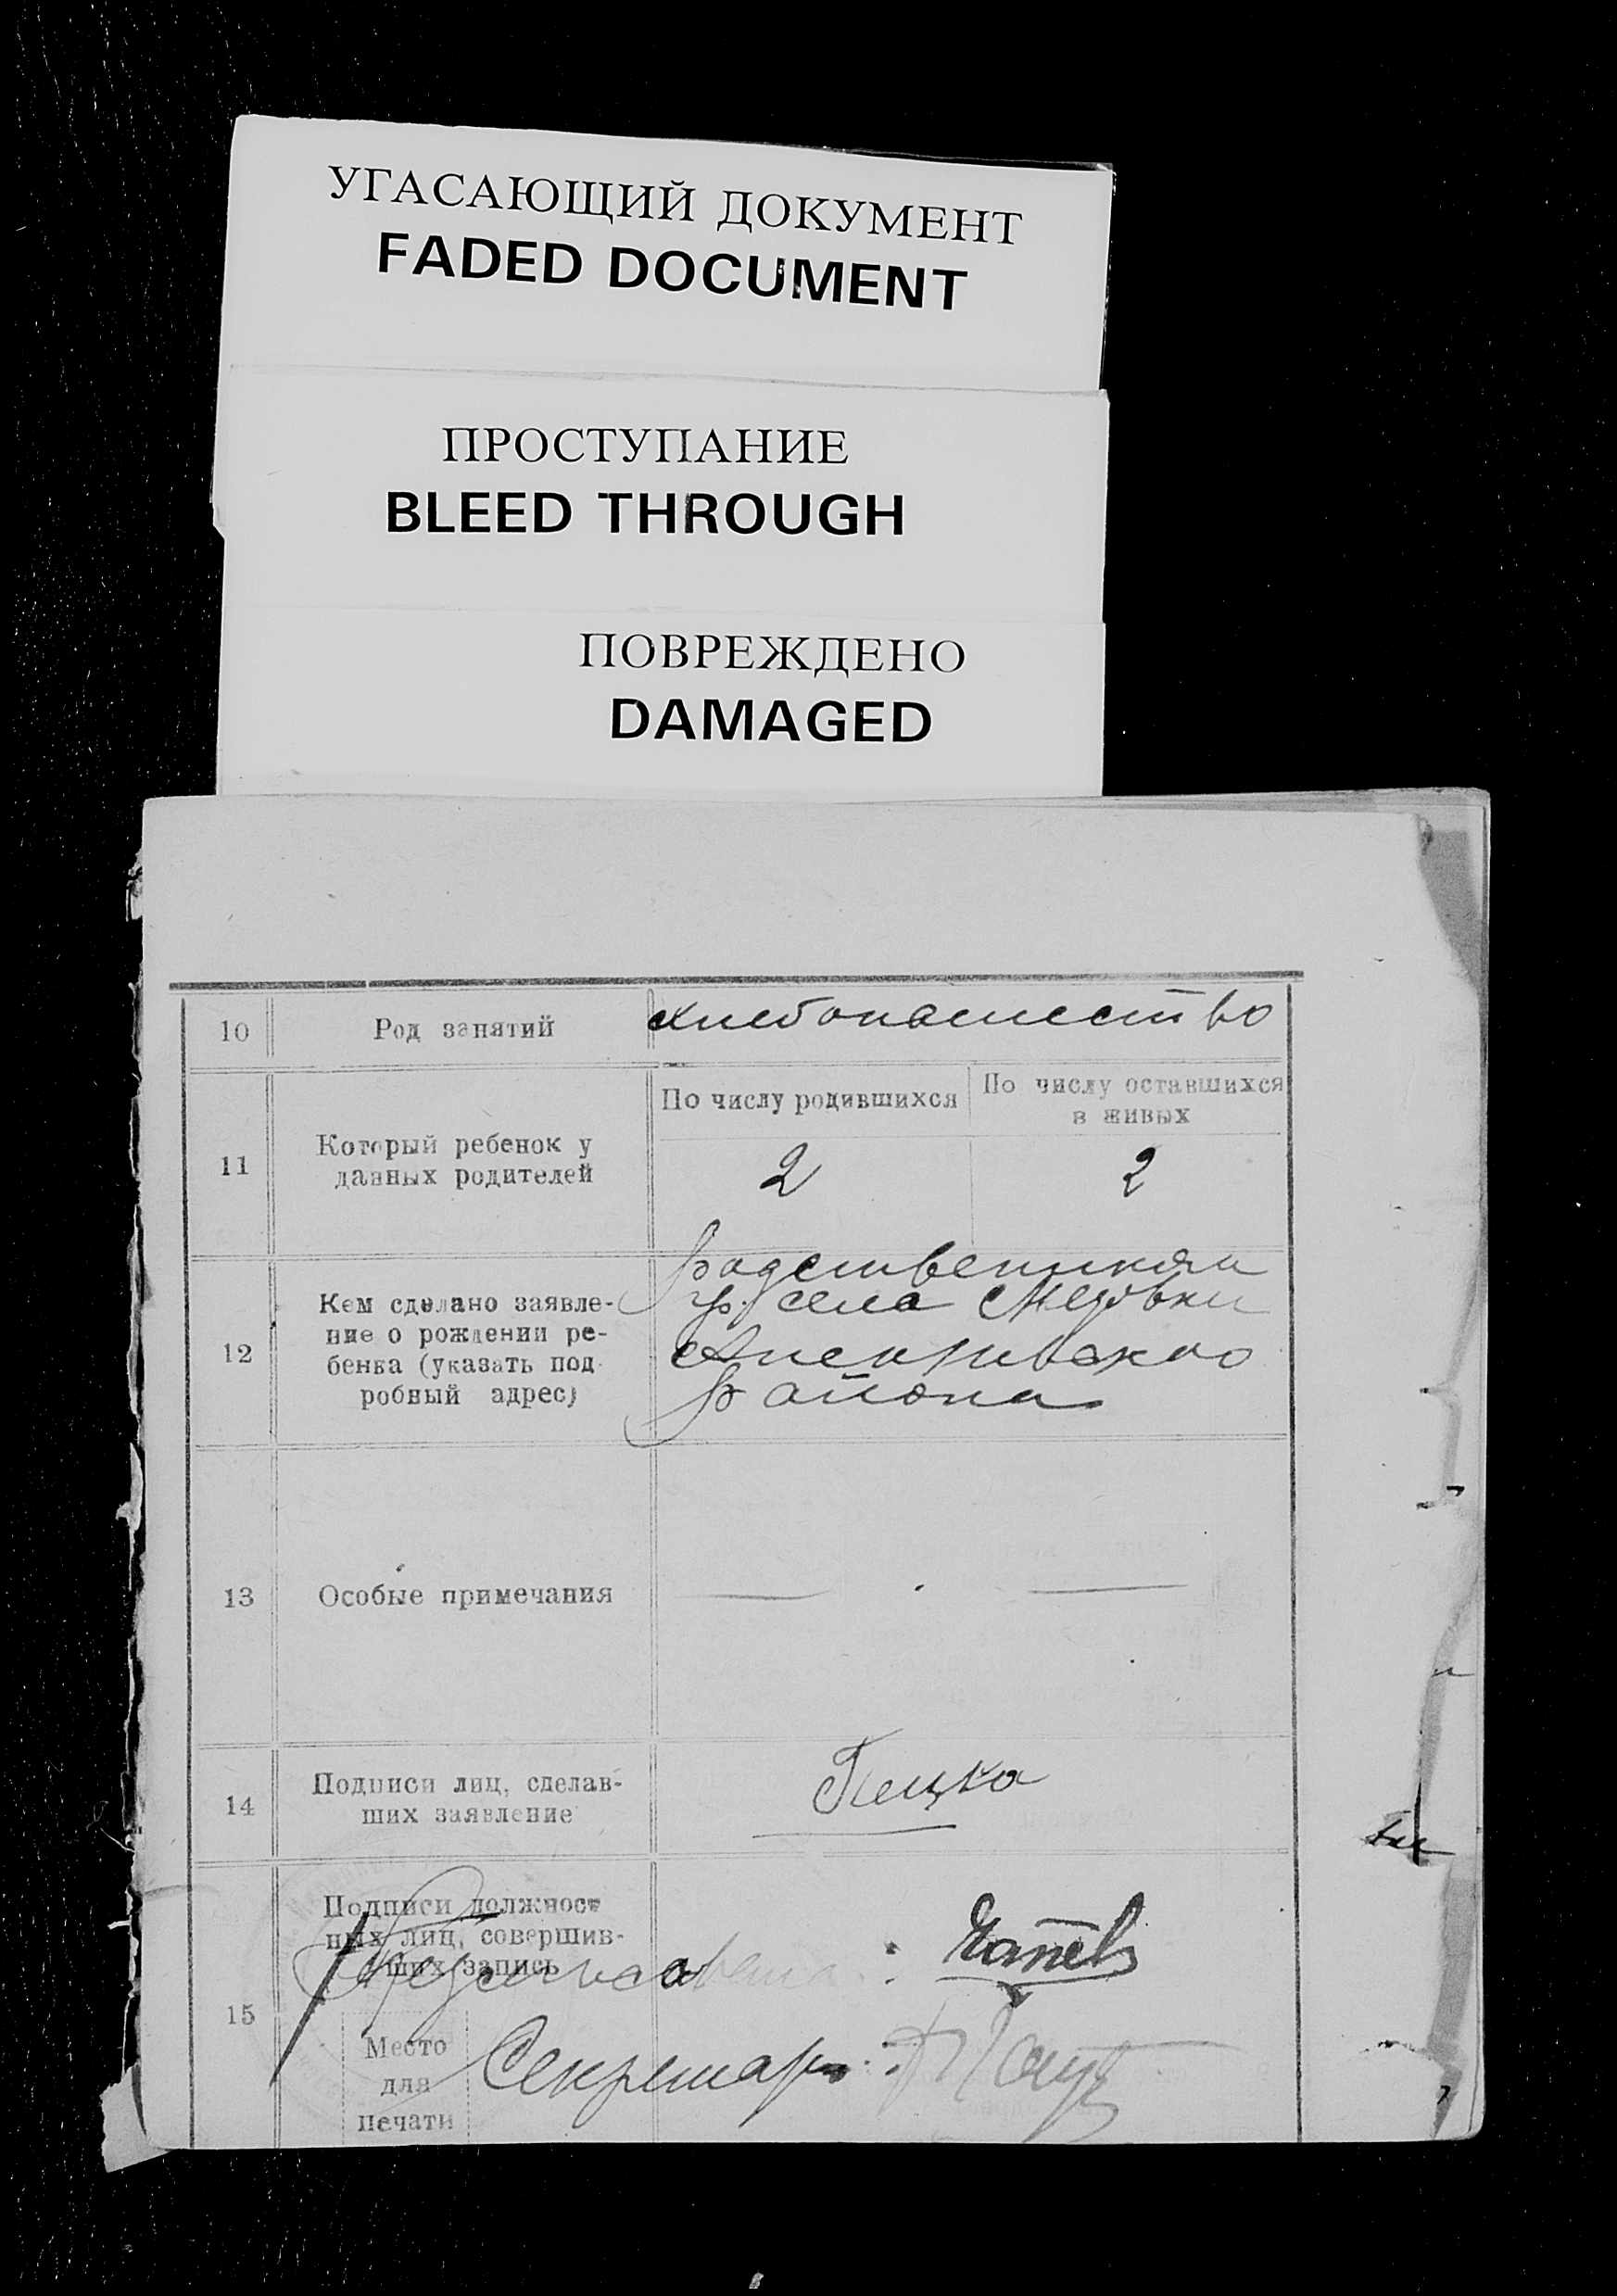 УГАСАЮЩИЙ ДОКУМЕНТ
FADED DOCUMENT
ПРОСТУПАНИЕ
BLEED THROUGH
ПОВРЕЖДЕНО
DAMAGED
10 Род занятий хлебопашество
11 Который ребенок у
данных родителей
По числу родившихся
2
По числу оставшихся
в живых
2
12 Кем сделано заявле-
ние о рождении ре-
бенка (указать под
робный адрес)
гр. села
района
13 Особые примечания
14 Подписи лиц, сделав-
ших заявление
15 Подписи должност
ных лиц, совершив-
ших запись
Место
для
печати
Секретарь: